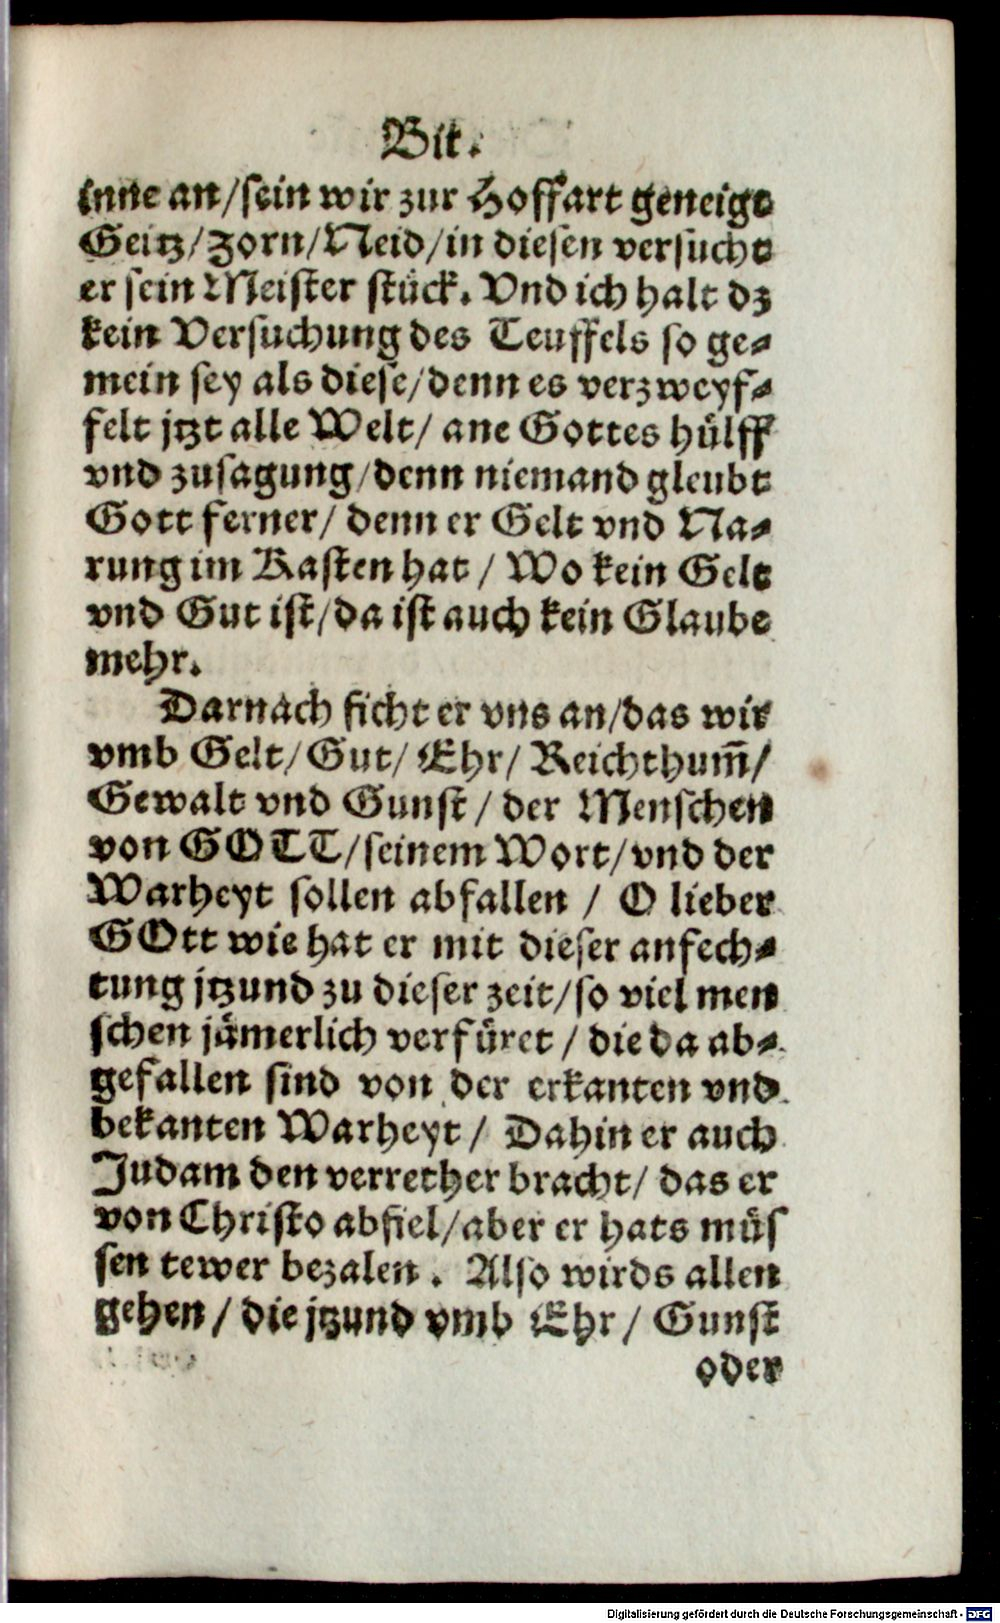 Bit.
inne an/sein wir zur Hoffart geneigt
Geitz/Zorn/Neid/in diesen versucht
er sein Meister stück. Vnd ich halt dz
kein Versuchung des Teuffels so ge-
mein sey als diese/denn es verzweyf-
felt jtzt alle Welt/ ane Gottes hülff
vnd zusagung/denn niemand gleubt
Gott ferner/ denn er Gelt vnd Na-
rung im Kasten hat / Wo kein Gelt
vnd Gut ist/da ist auch kein Glaube
mehr.
Darnach ficht er vns an/das wir
vmb Gelt/ Gut/ Ehr/ Reichthum̃/
Gewalt vnd Gunst / der Menschen
von GOTT/seinem Wort/vnd der
Warheyt sollen abfallen / O lieber
GOtt wie hat er mit dieser anfech-
tung jtzund zu dieser zeit/so viel men
schen jämerlich verfüret / die da ab-
gefallen sind von der erkanten vnd
bekanten Warheyt / Dahin er auch
Judam den verrether bracht/ das er
von Christo abfiel/aber er hats müs
sen tewer bezalen. Also wirds allen
gehen / die jtzund vmb Ehr/ Gunst
oder
Digitalisierung gefördert durch die Deutsche Forschungsgemeinschaft - DFG